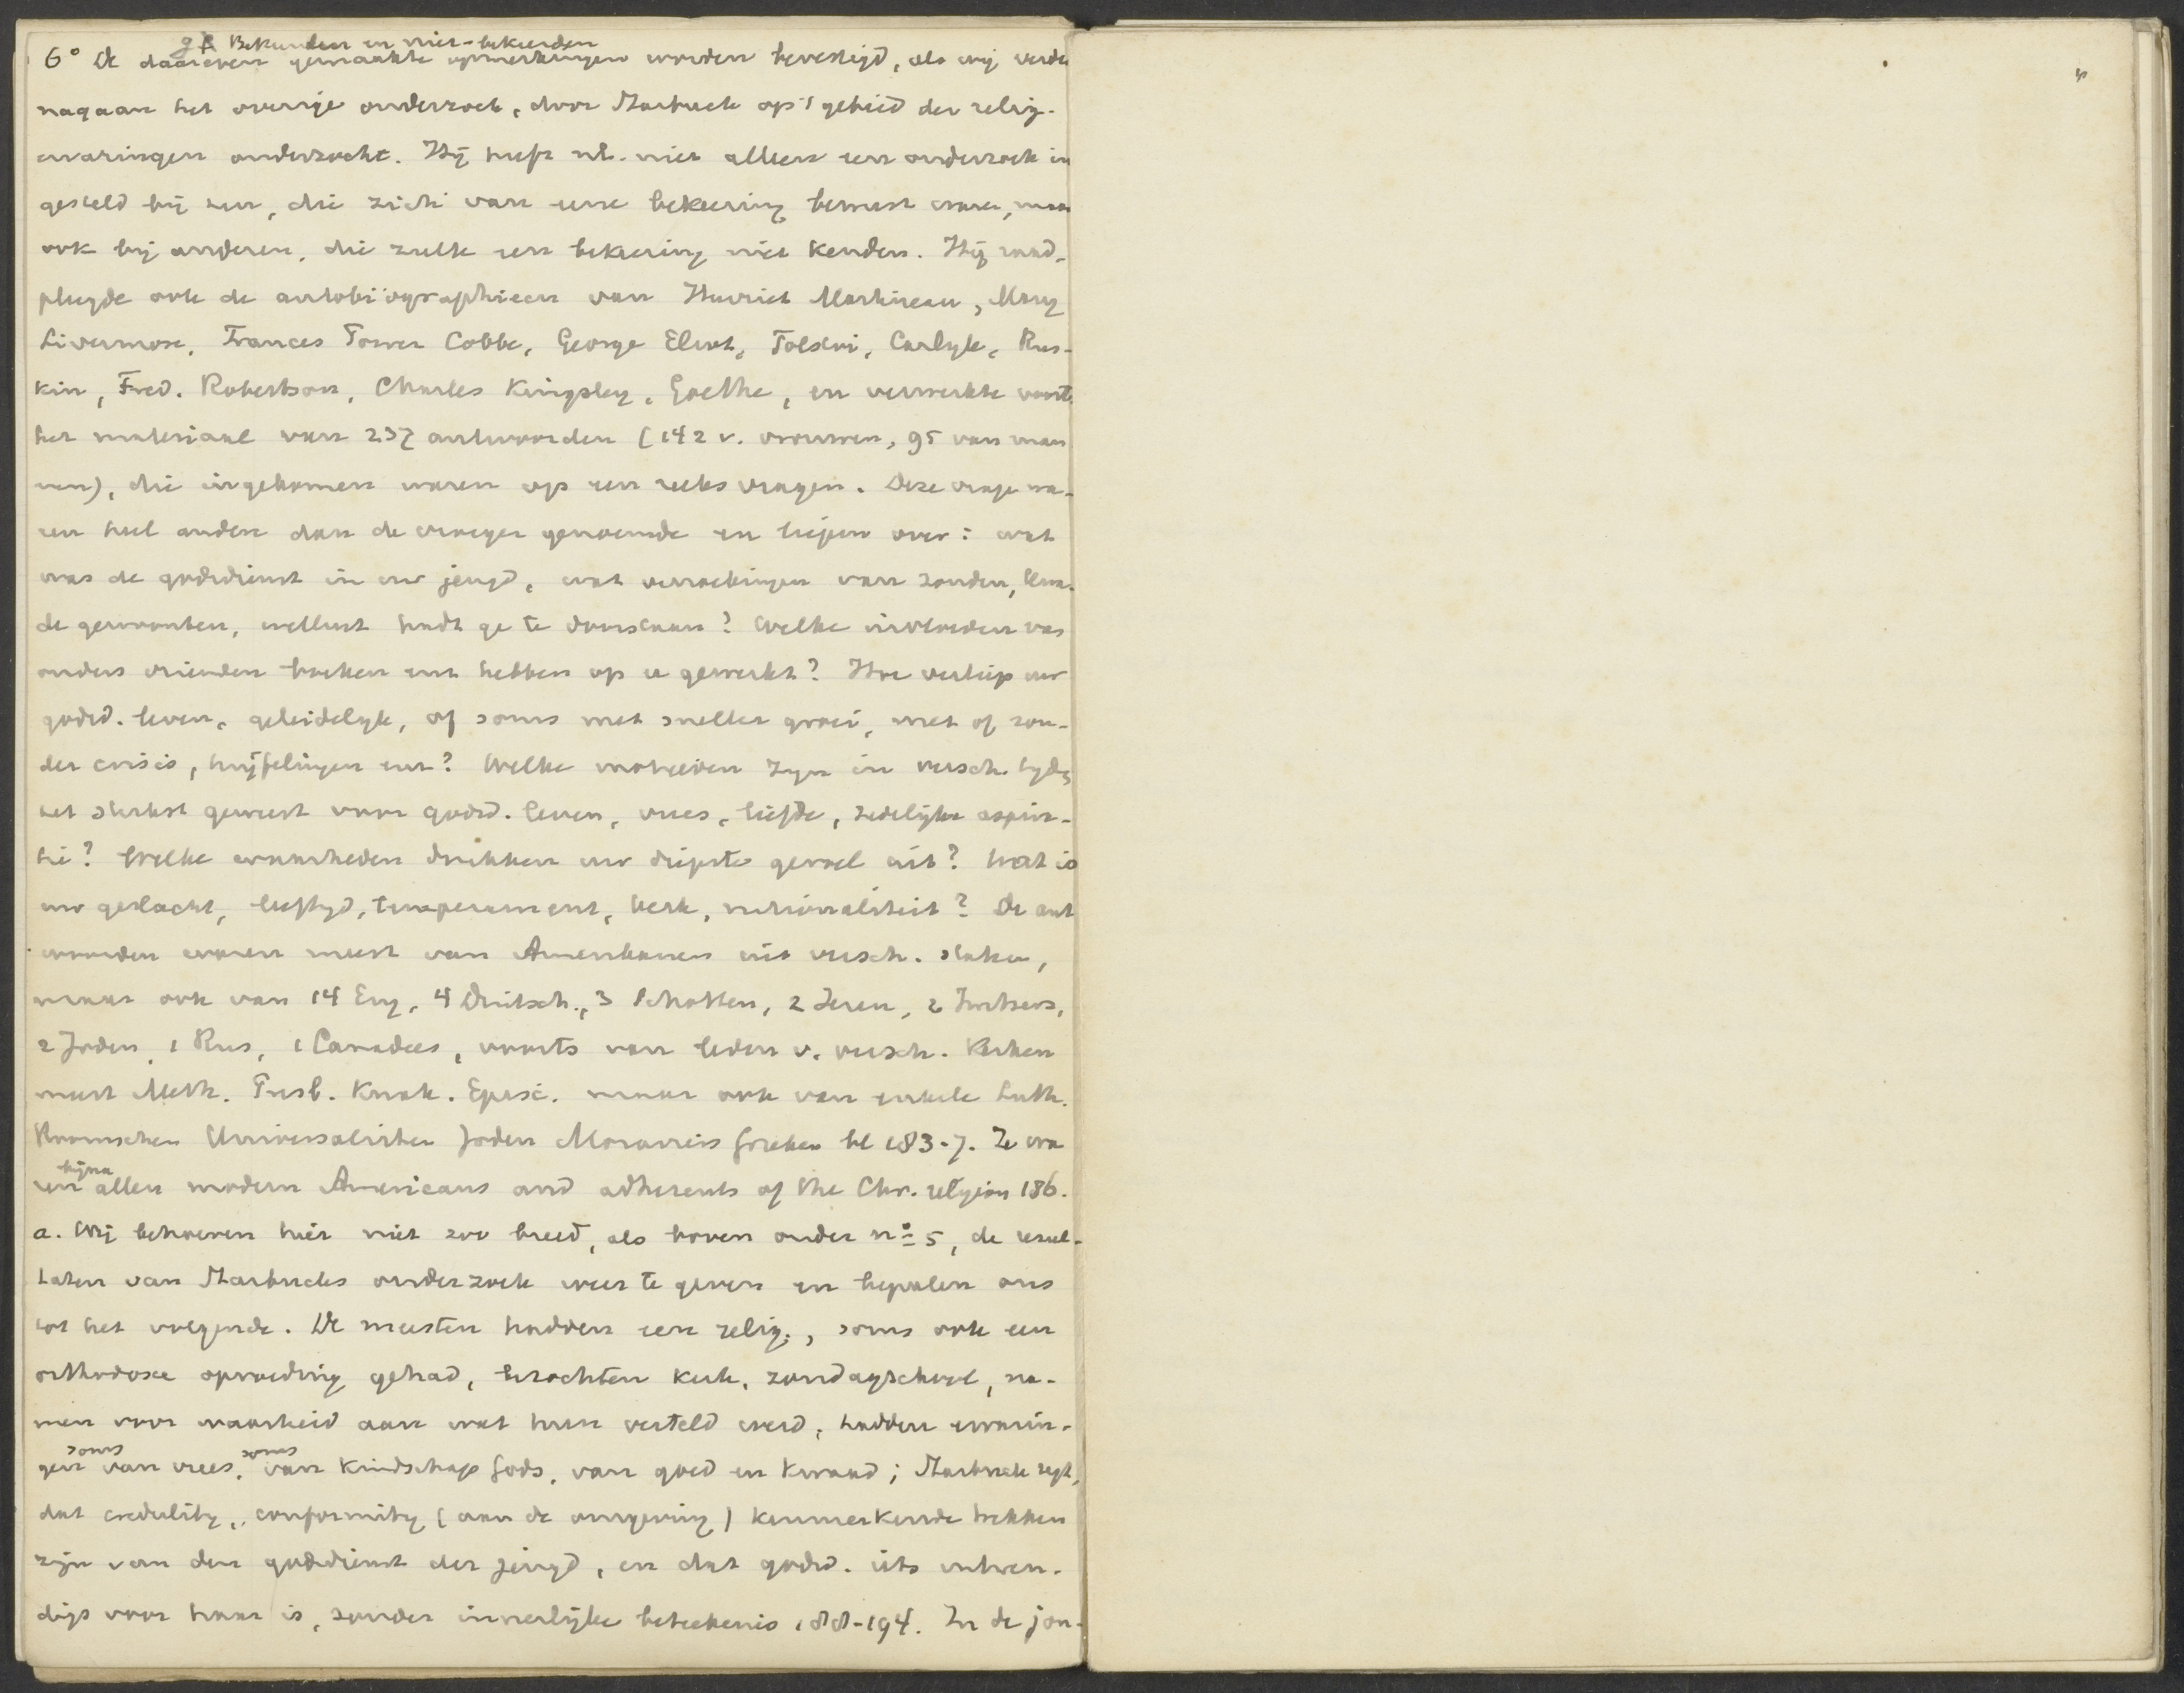 g R Bekeerden en niet-bekeerden
6° De daareven gemaakte opmerkingen worden bevestigd, als wij verde
nagaan het overige onderzoek, door Starbuck op 't gebied der relig.
ervaringen onderzocht. Hij heeft nl. niet alleen een onderzoek in
gesteld bij hen, die zich van eene bekeering bewust waren, maar
ook bij anderen, die zulk een bekeering niet kenden. Hij raad-
pleegde ook de autobiögraphieen van Harriet Martineau, Mary
Livermore, Frances Power Cobbe, George Eliot, Tolstoi, Carlyle, Rus-
kin, Fred. Robertson, Charles Kingsley, Goethe, en verwerkte voorts
het materiaal van 237 antwoorden (142 v. vrouwen, 95 van man
nen), die ingekomen waren op een reeks vragen. Deze vrage wa-
ren heel andere dan de vroeger genoemde en liepen over: wat
was de godsdienst in uw jeugd, wat verzoekingen van zonden, kwa-
de gewoonten, wellust hadt ge te doorstaan? Welke invloeden van
ouders vrienden boeken enz hebben op u gewerkt? Hoe verliep uw
godsd. leven, geleidelijk, of soms met sneller groei, met of zon-
der crisis, twijfelingen enz? Welke motieven zijn in versch. tyds
het sterkst geweest voor godsd. leven, vrees, liefde, zedelijke aspira-
tie? Welke waarheden drukken uw diepste gevoel uit? Wat is
uw geslacht, leeftijd, temperament, kerk, nationaliteit? De ant
woorden waren meest van Amerikanen uit versch. staten,
maar ook van 14 Eng, 4 Duitsch., 3 Schotten, 2 Ieren, 2
2 Joden, 1 Rus, 1 Canadees, voorts van leden v. versch. Kerken
meest Meth. Presb. Kwak. Episc. maar ook van enkele Luth.
Roomschen Universalisten Joden Moraviers Grieken bl 183-7. Ze wa
ren bijna allen modern Americans and adherents of the Chr. religion 186.
a. Wij behoeven hier niet zoo breed, als boven onder n° 5, de resul-
taten van Starbucks onderzoek weer te geven en bepalen ons
tot het volgende. De meesten hadden een relig., soms ook een
orthodoxe opvoeding gehad, bezochten kerk, zondagschool, na-
men voor waarheid aan wat hun verteld werd, hadden ervarin-
gen soms van vrees, soms van Kindschap Gods, van goed en kwaad; Starbuck zegt,
dat credulity, conformity (aan de omgeving) kenmerkende trekken
zijn van den godsdienst der jeugd, en dat godsd. iets uitwen-
digs voor haar is, zonder innerlijke beteekenis 188-194. In de jon-